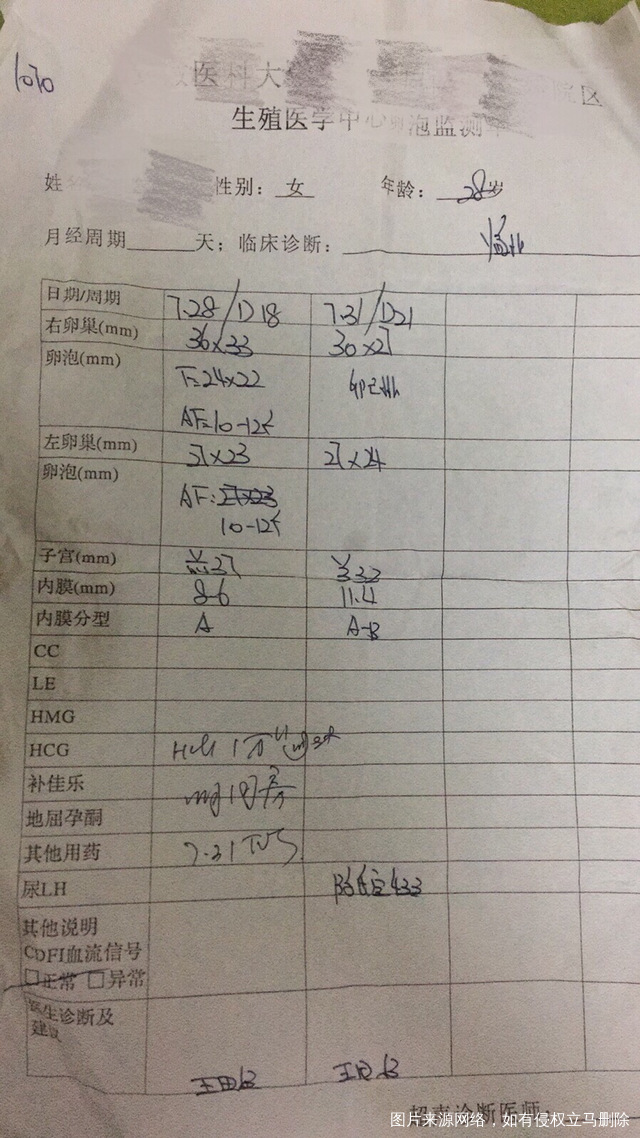 1070
医科大
院区
生殖医学中心卵泡监测单
姓
性别：女
年龄：28岁
月经周期______天；临床诊断：
日期/周期 7.28/D18 7.31/D21
右卵巢(mm) 36×33 30×27
卵泡(mm)
F=24×22 卵已排
AF=10-12个
左卵巢(mm) ×23 27×24
卵泡(mm)
AF:
10-12个
子宫(mm)
内膜(mm) 8.6 11.4
内膜分型 A A-B
CC
LE
HMG
HCG HCG 1万U im
补佳乐
地屈孕酮
其他用药 7.31 TVS
尿LH
其他说明
CDFI血流信号
□正常 □异常
医生诊断及
建议
超声诊断医师
图片来源网络，如有侵权立马删除